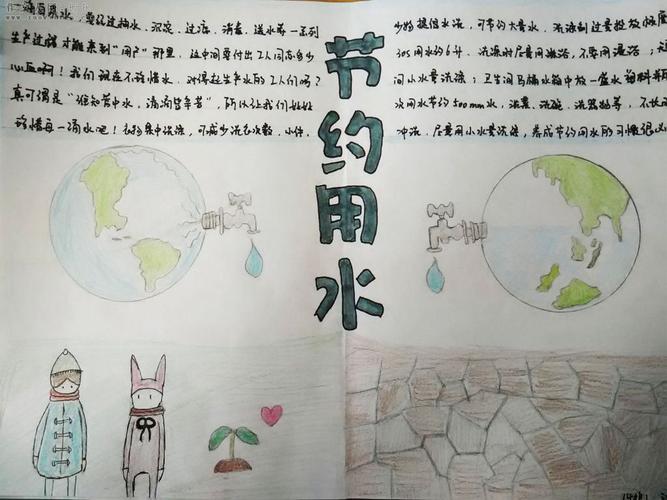 一滴自来水，要经过抽水、沉淀、过滤、消毒、送水等一系列
生产过程才能来到“用户”那里，这中间要付出工人同志多少
心血啊！我们现在不珍惜水，对得起生产水的工人们吗？
真可谓是“谁知管中水，滴滴皆辛苦”，所以让我们
珍惜每一滴水吧！衣物集中洗涤，可减少洗衣次数，小件、
节约用水
少物提倡手洗，可节约大量水，洗涤剂过量投放
30s用水约6升，洗澡时尽量用淋浴，不要用
间小水量洗涤；卫生间马桶水箱中放一盛水
次用水节约500mm水，洗菜、洗碗、洗器物等，不长
冲洗，尽量用小水量洗涤，养成节约用水的习惯很必